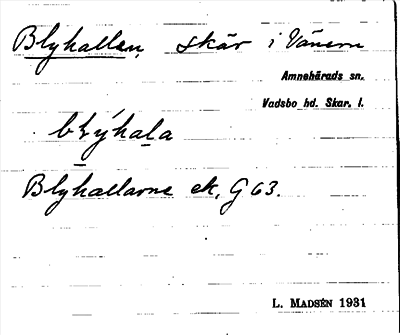 Blyhallen, skär i Vänern
Amnehärads sn.
Vadsbo hd. Skar. l.
blýhala
Blyhallarna ek, G 63.
L. MADSÉN 1931